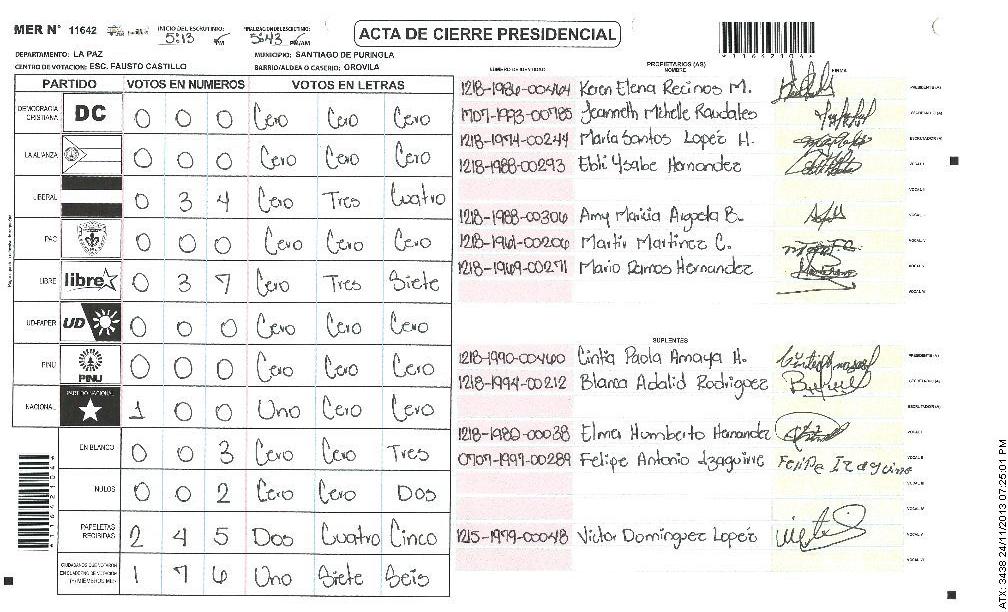 MER N° 11642
INICIO DEL ESCRUTINIO: 5:13 PM
FINALIZACION DEL ESCRUTINIO: 5:43 PM/AM
ACTA DE CIERRE PRESIDENCIAL
DEPARTAMENTO: LA PAZ
MUNICIPIO: SANTIAGO DE PURINGLA
CENTRO DE VOTACION: ESC. FAUSTO CASTILLO
BARRIO/ALDEA O CASERIO: OROVILA
PARTIDO VOTOS EN NUMEROS VOTOS EN LETRAS
DEMOCRACIA CRISTIANA DC 0 0 0 Cero Cero Cero
LA ALIANZA 0 0 0 Cero Cero Cero
LIBERAL 0 3 4 Cero Tres Cuatro
PAC 0 0 0 Cero Cero Cero
LIBRE libre 0 3 7 Cero Tres Siete
UD-FAPER UD 0 0 0 Cero Cero Cero
PINU PINU 0 0 0 Cero Cero Cero
NACIONAL PARTIDO NACIONAL 1 0 0 Uno Cero Cero
EN BLANCO 0 0 3 Cero Cero Tres
NULOS 0 0 2 Cero Cero Dos
PAPELETAS RECIBIDAS 2 4 5 Dos Cuatro Cinco
CIUDADANOS QUE VOTARON EN CUADERNO DE VOTACION (+) MIEMBROS MER 1 7 6 Uno Siete Seis
NUMERO DE IDENTIDAD PROPIETARIOS (AS) NOMBRE FIRMA
1218-1986-00464 Keren Elena Recinos M. PRESIDENTE (A)
1707-1993-00785 Jeanneth Mihelle Raudales SECRETARIO (A)
1218-1974-00244 María Santos Lopez H. ESCRUTADOR (A)
1218-1988-00293 Ebli Ysabe Hernandez VOCAL I
VOCAL II
1218-1988-00306 Amy Maricia Argueta B. VOCAL III
1218-1961-00206 Martir Martinez C. VOCAL IV
1218-1969-00271 Mario Ramos Hernandez VOCAL V
VOCAL VI
SUPLENTES
1218-1990-00460 Cintia Paola Amaya H. PRESIDENTE (A)
1218-1994-00212 Blanca Adalid Rodriguez SECRETARIO (A)
ESCRUTADOR (A)
1218-1980-00038 Elmer Humberto Hernandez VOCAL I
0707-1997-00289 Felipe Antonio Izaguirre Felipe Izaguirre VOCAL II
VOCAL III
VOCAL IV
1215-1979-00048 Victor Dominguez Lopez VOCAL V
VOCAL VI
ATX: 3438 24/11/2013 07:25:01 PM